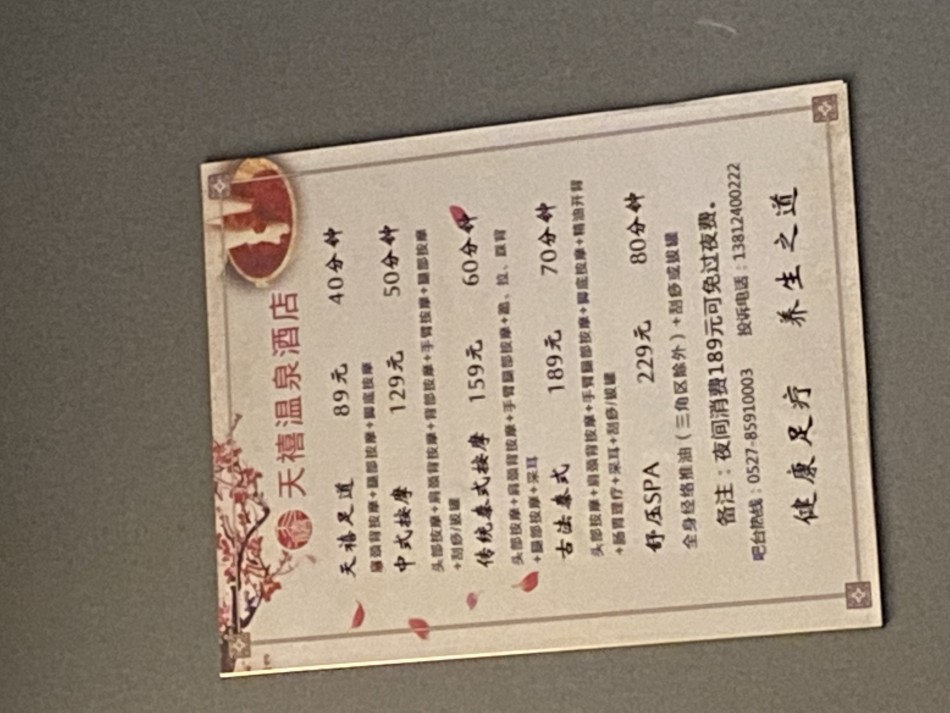 天禧温泉酒店
天禧足道 89元 40分钟
肩颈背按摩+腿部按摩+脚底按摩
中式按摩 129元 50分钟
头部按摩+肩颈背按摩+背部按摩+手臂按摩+腿部按摩
+刮痧/拔罐
传统泰式按摩 159元 60分钟
头部按摩+肩颈背按摩+手臂腿部按摩+跪、拉、踩背
+腿部按摩+采耳
古法泰式 189元 70分钟
头部按摩+肩颈背按摩+手臂腿部按摩+脚底按摩+精油开背
+肠胃理疗+采耳+刮痧/拔罐
舒压SPA 229元 80分钟
全身经络推油(三角区除外)+刮痧或拔罐
备注:夜间消费189元可免过夜费。
吧台热线:0527-85910003 投诉电话:13812400222
健康足疗 养生之道